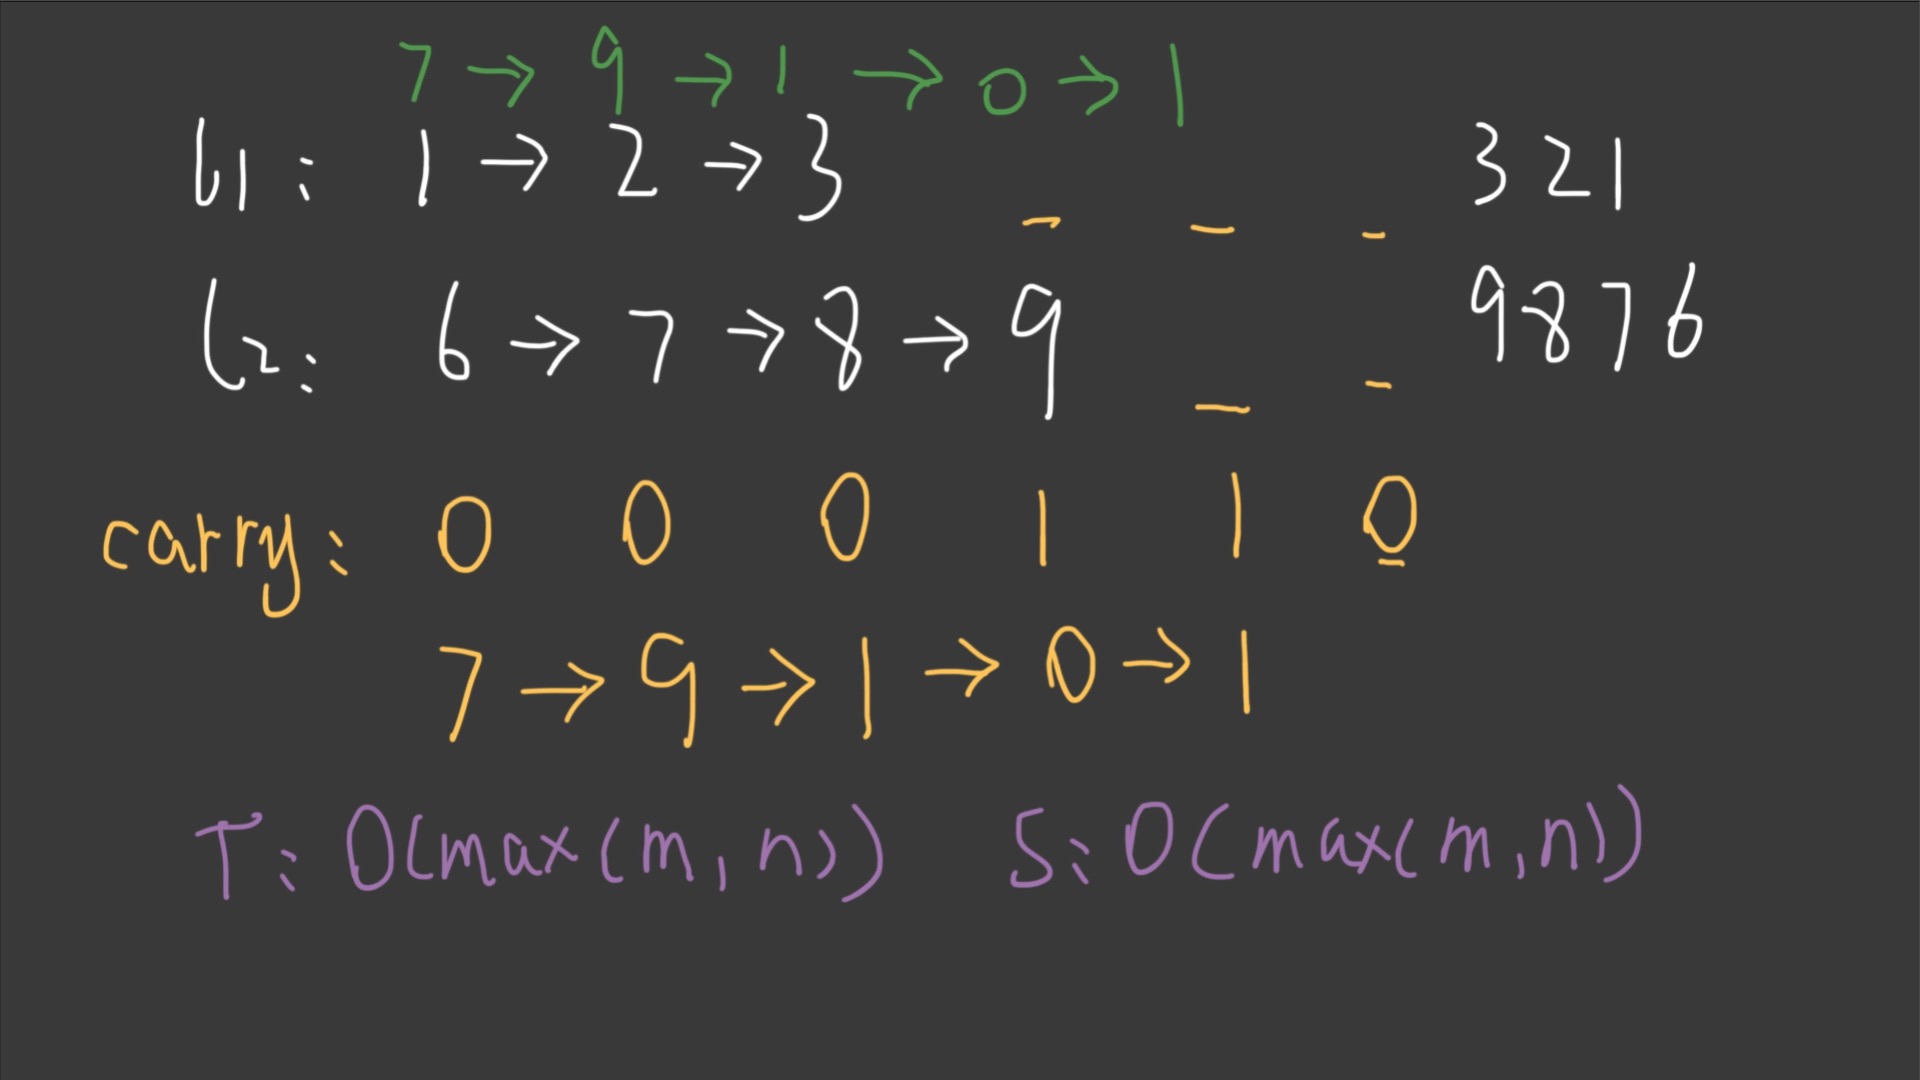 7 → 9 → 1 → 0 → 1
l1: 1 → 2 → 3 - - - 321
l2: 6 → 7 → 8 → 9 - - 9876
carry: 0 0 0 1 1 0
7 → 9 → 1 → 0 → 1
T: O(max(m,n)) S: O(max(m,n))